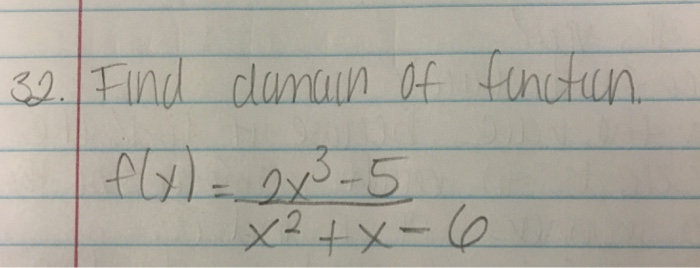 32. Find domain of function.
f(x) = 2x³-5
x² + x - 6